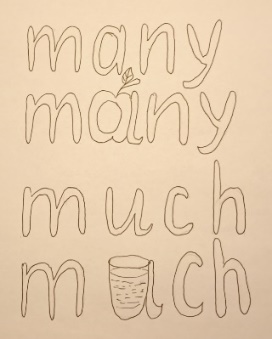 many
many
much
much